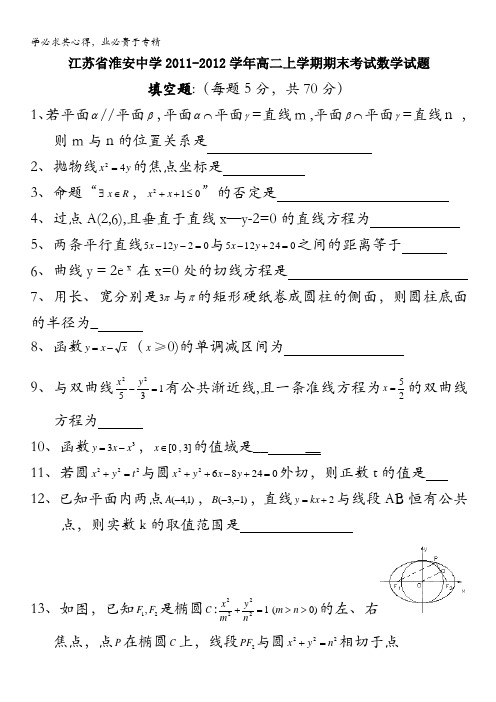 学必求其心得，业必贵于专精
江苏省淮安中学2011-2012学年高二上学期期末考试数学试题
填空题:（每题5分，共70分）
1、若平面α//平面β,平面α∩平面γ=直线m,平面β∩平面γ=直线n ，
则m与n的位置关系是
2、抛物线x²=4y的焦点坐标是
3、命题“∃x∈R，x²+x+1≤0”的否定是
4、过点A(2,6),且垂直于直线x—y-2=0的直线方程为
5、两条平行直线5x-12y-2=0与5x-12y+24=0之间的距离等于
6、曲线y = 2e ˣ 在x=0处的切线方程是
7、用长、宽分别是3π与π的矩形硬纸卷成圆柱的侧面，则圆柱底面
的半径为_
8、函数y=x-√x（x≥0)的单调减区间为
9、与双曲线x²/5-y²/3=1有公共渐近线,且一条准线方程为x=5/2的双曲线
方程为
10、函数y=3x-x³，x∈[0,3]的值域是__ __
11、若圆x²+y²=t²与圆x²+y²+6x-8y+24=0外切，则正数t的值是
12、已知平面内两点A(-4,1)，B(-3,-1)，直线y=kx+2与线段AB恒有公共
点，则实数k的取值范围是
13、如图，已知F₁,F₂是椭圆C:x²/m²+y²/n²=1 (m>n>0)的左、右
焦点，点P在椭圆C上，线段PF₂与圆x²+y²=n²相切于点